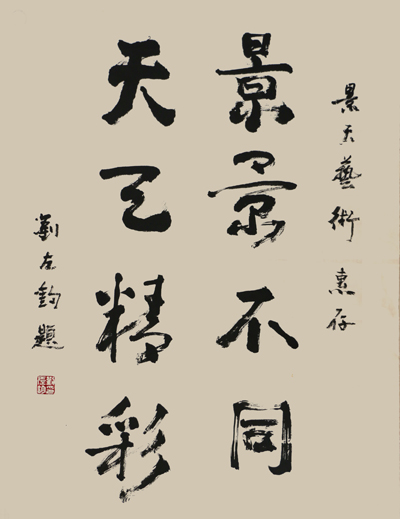 景天藝術 惠存
景景不同
天天精彩
劉左鈞題